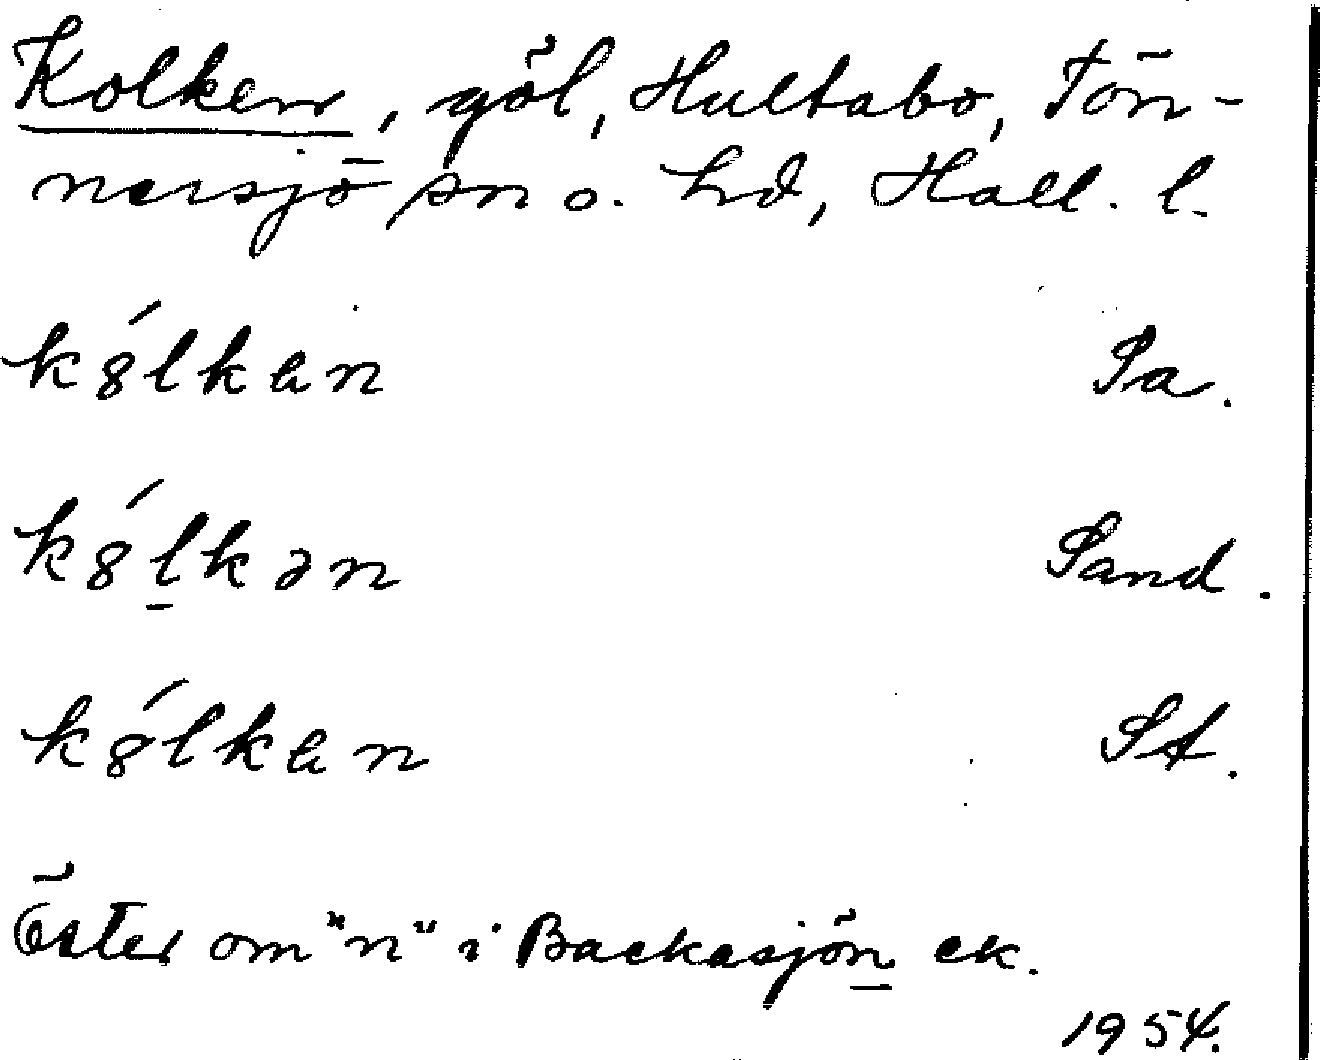 Kolken, göl, Hultabo, Tön-
nersjö sn o. hd, Hall. l.
k8́lkan Sa.
k8́l̲kən Sand.
k8́lkan St.
Öster om "n" i Backasjön̲ ek.
1954.